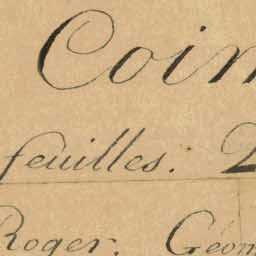 Coin
feuilles.
Roger. Géom